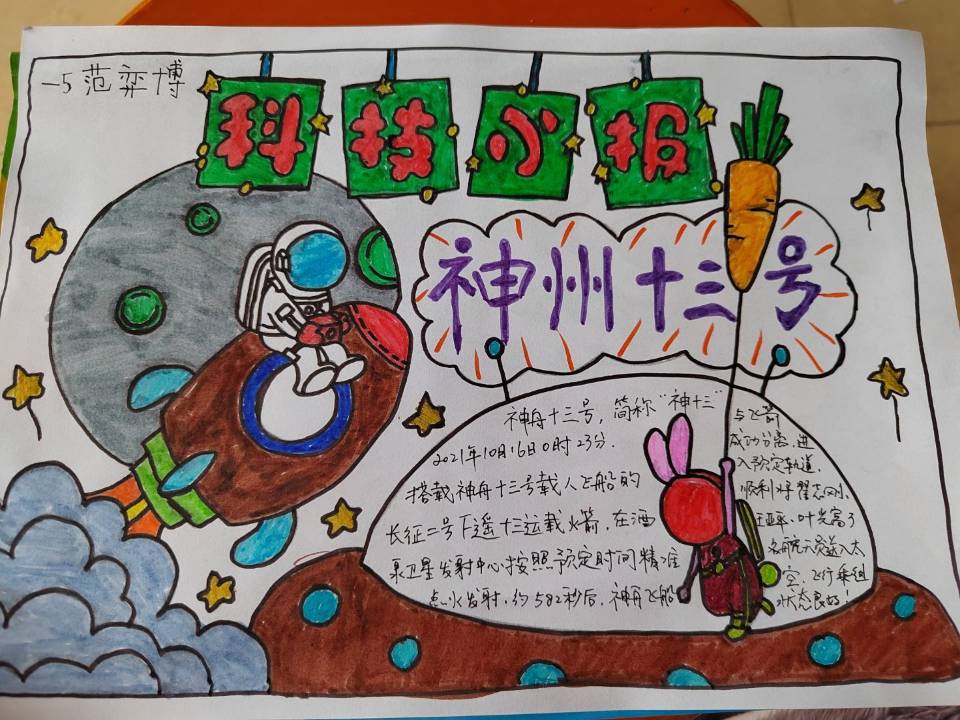 一5范弈博
科技小报
神州十三号
神舟十三号，简称“神十三”
2021年10月16日0时23分.
搭载神舟十三号载人飞船的
长征二号F遥十三运载火箭，在酒
泉卫星发射中心按照预定时间精准
点火发射，约582秒后，神舟飞船
与飞箭
成功分离，进
入预定轨道，
顺利将翟志刚，
王亚平、叶光富3
名航天员送入太
空，飞行乘组
状态良好！